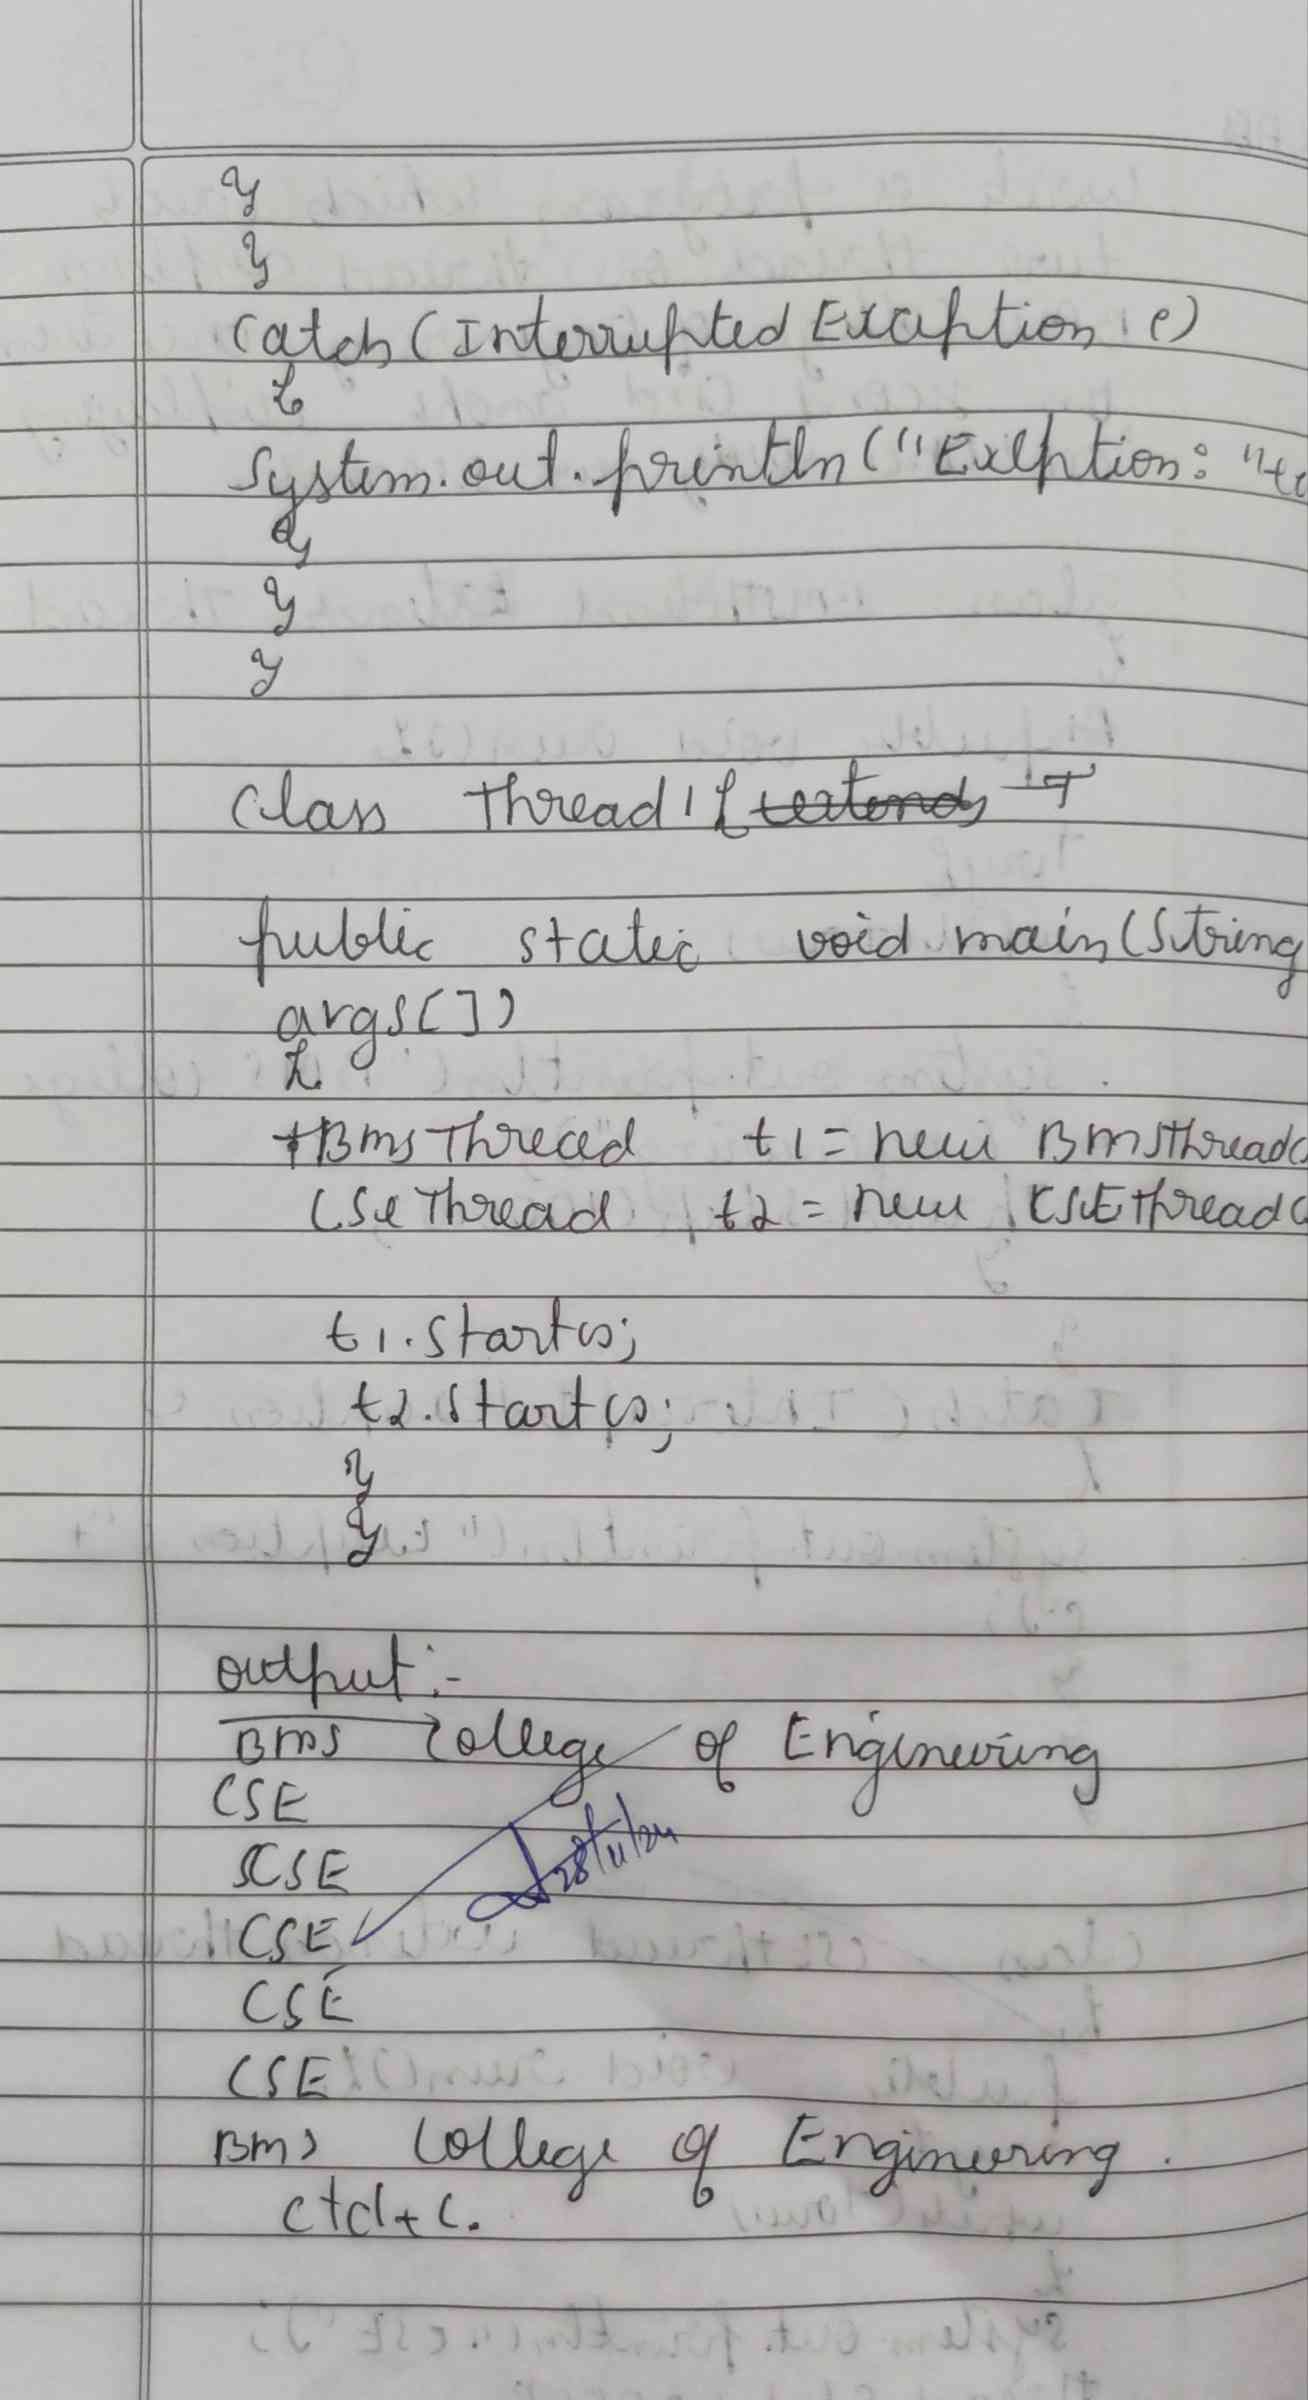 }
}
catch (Interrupted Exception e)
{
System.out.println ("Exception: "+e
}
}
}
class Thread1 {
public static void main (String
args[])
{
BmsThread t1 = new BmsThread(
CSEThread t2 = new CSEThread(
t1.start();
t2.start();
}
}
output :-
BMS College of Engineering
CSE
CSE
CSE
CSE
CSE
BMS College of Engineering.
ctrl+c.
28/11/24